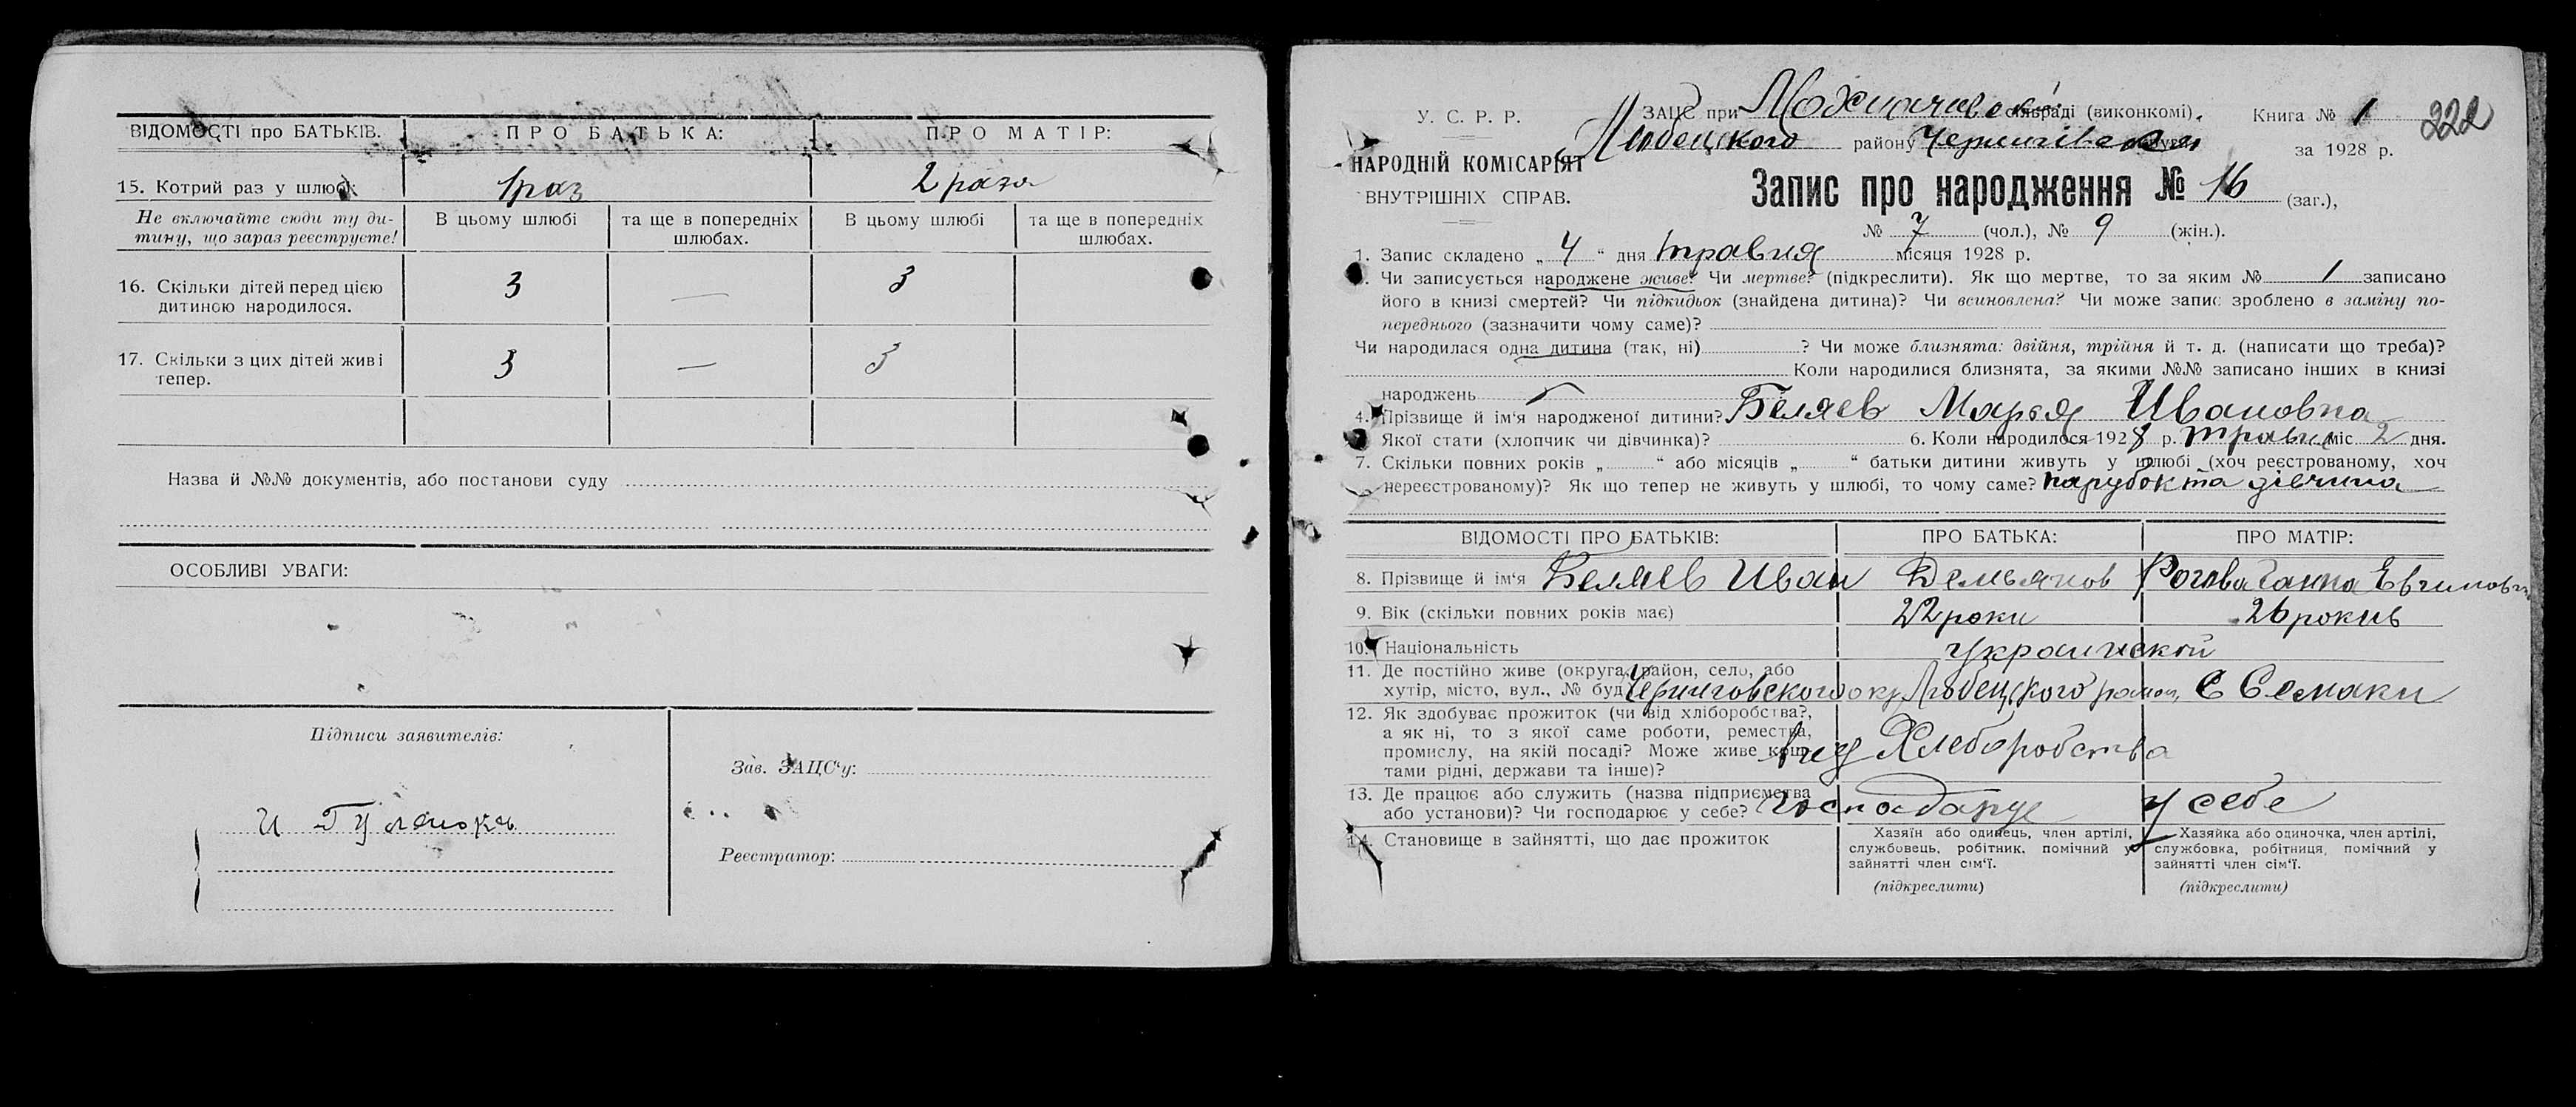 ВІДОМОСТІ про БАТЬКІВ. ПРО БАТЬКА: ПРО МАТІР:
15. Котрий раз у шлюбі 1 раз 2 раза
Не включайте сюди ту ди- В цьому шлюбі та ще в попередніх В цьому шлюбі та ще в попередніх
тину, що зараз реєструєте! шлюбах. шлюбах.
16. Скільки дітей перед цією 3 — 3
дитиною народилося.
17. Скільки з цих дітей живі 3 — 3
тепер.
Назва й №№ документів, або постанови суду
ОСОБЛИВІ УВАГИ:
Підписи заявителів:
Зав. ЗАЦС'у:
И
Реєстратор:
У. С. Р. Р.
ЗАЦС при сільраді (виконкомі). Книга № 1 222
Любецкого району за 1928 р.
НАРОДНІЙ КОМІСАРІЯТ
ВНУТРІШНІХ СПРАВ.
Запис про народження № 16 (заг.),
№ 7 (чол.), № 9 (жін.).
1. Запис складено „ 4 “ дня травня місяця 1928 р.
Чи записується народжене живе? Чи мертве? (підкреслити). Як що мертве, то за яким № 1 записано
його в книзі смертей? Чи підкидьок (знайдена дитина)? Чи всиновлена? Чи може запис зроблено в заміну по-
переднього (зазначити чому саме)?
Чи народилася одна дитина (так, ні) ? Чи може близнята: двійня, трійня й т. д. (написати що треба)?
Коли народилися близнята, за якими №№ записано інших в книзі
народжень
4. Прізвище й ім'я народженої дитини? Беляев Марья Ивановна
Якої стати (хлопчик чи дівчинка)? 6. Коли народилося 1928 р. травня міс. 2 дня.
7. Скільки повних років „ “ або місяців „ “ батьки дитини живуть у шлюбі (хоч реєстрованому, хоч
нереєстрованому)? Як що тепер не живуть у шлюбі, то чому саме? парубок та дівчина
ВІДОМОСТІ ПРО БАТЬКІВ: ПРО БАТЬКА: ПРО МАТІР:
8. Прізвище й ім'я Беляев Иван Демьянов Ганна
9. Вік (скільки повних років має) 22 роки 26 рокив
10. Національність украинской
11. Де постійно живе (округа, район, село, або
хутір, місто, вул., № буд. Черниговского окр Любецкого район, С Семаки
12. Як здобуває прожиток (чи від хліборобства?,
а як ні, то з якої саме роботи, ремества,
промислу, на якій посаді? Може живе кош- Хлеборобства
тами рідні, держави та інше)?
13. Де працює або служить (назва підприємства
або установи)? Чи господарює у себе? господарує у себе
14. Становище в зайнятті, що дає прожиток
Хазяїн або одинець, член артілі, Хазяйка або одиночка, член артілі,
службовець, робітник, помічний у службовка, робітниця, помічний у
зайнятті член сім'ї. зайнятті член сім'ї.
(підкреслити) (підкреслити)